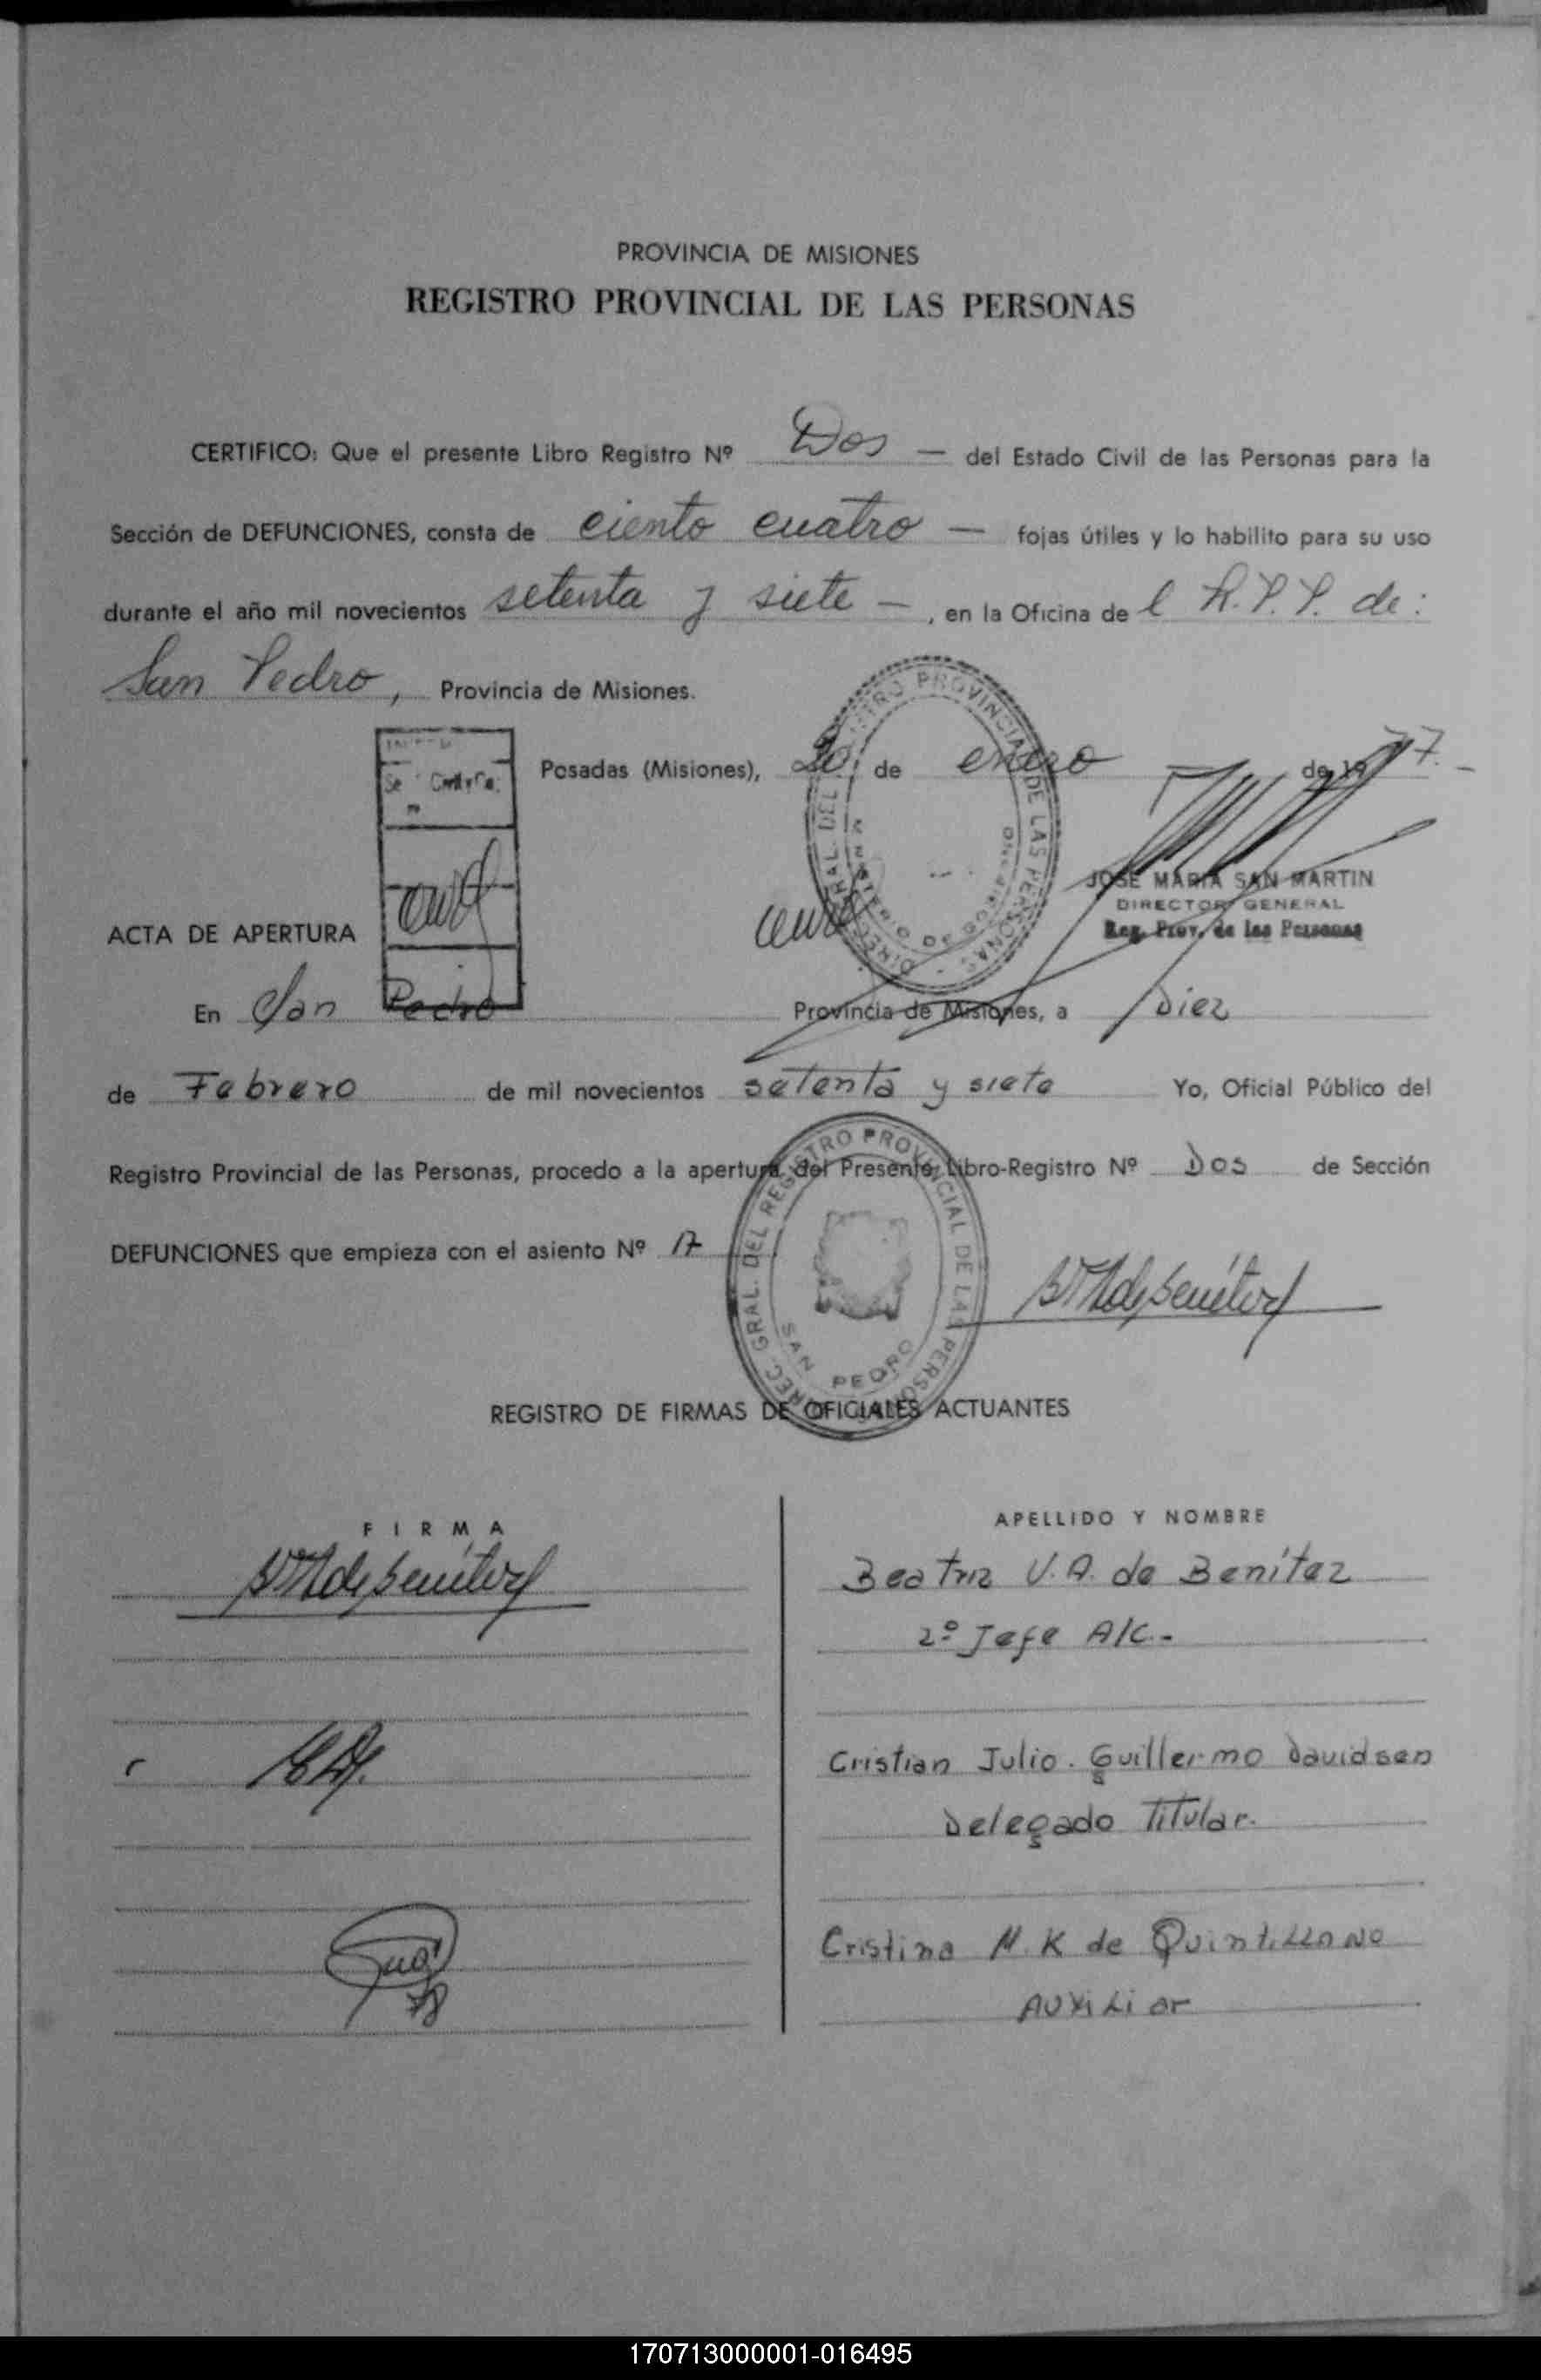 PROVINCIA DE MISIONES
REGISTRO PROVINCIAL DE LAS PERSONAS
CERTIFICO: Que el presente Libro Registro Nº Dos — del Estado Civil de las Personas para la
Sección de DEFUNCIONES, consta de ciento cuatro — fojas útiles y lo habilito para su uso
durante el año mil novecientos setenta y siete — , en la Oficina de l R.P.P. de:
San Pedro, Provincia de Misiones.
Posadas (Misiones), 20 de enero de 1977.-
DIREC. GRAL. DEL REGISTRO PROVINCIAL DE LAS PERSONAS
MINISTERIO DE GOBIERNO
JOSE MARIA SAN MARTIN
DIRECTOR GENERAL
Reg. Prov. de las Personas
ACTA DE APERTURA
En San Pedro Provincia de Misiones, a Diez
de Febrero de mil novecientos setenta y siete Yo, Oficial Público del
Registro Provincial de las Personas, procedo a la apertura del Presente Libro-Registro Nº Dos de Sección
DEFUNCIONES que empieza con el asiento Nº 17
DIREC. GRAL. DEL REGISTRO PROVINCIAL DE LAS PERSONAS
SAN PEDRO
REGISTRO DE FIRMAS DE OFICIALES ACTUANTES
FIRMA
APELLIDO Y NOMBRE
Beatriz V.A. de Benítez
2º Jefe A/C.-
Cristian Julio. Guillermo Davidsen
Delegado Titular.
Cristina M. K de Quintillano
Auxiliar
170713000001-016495